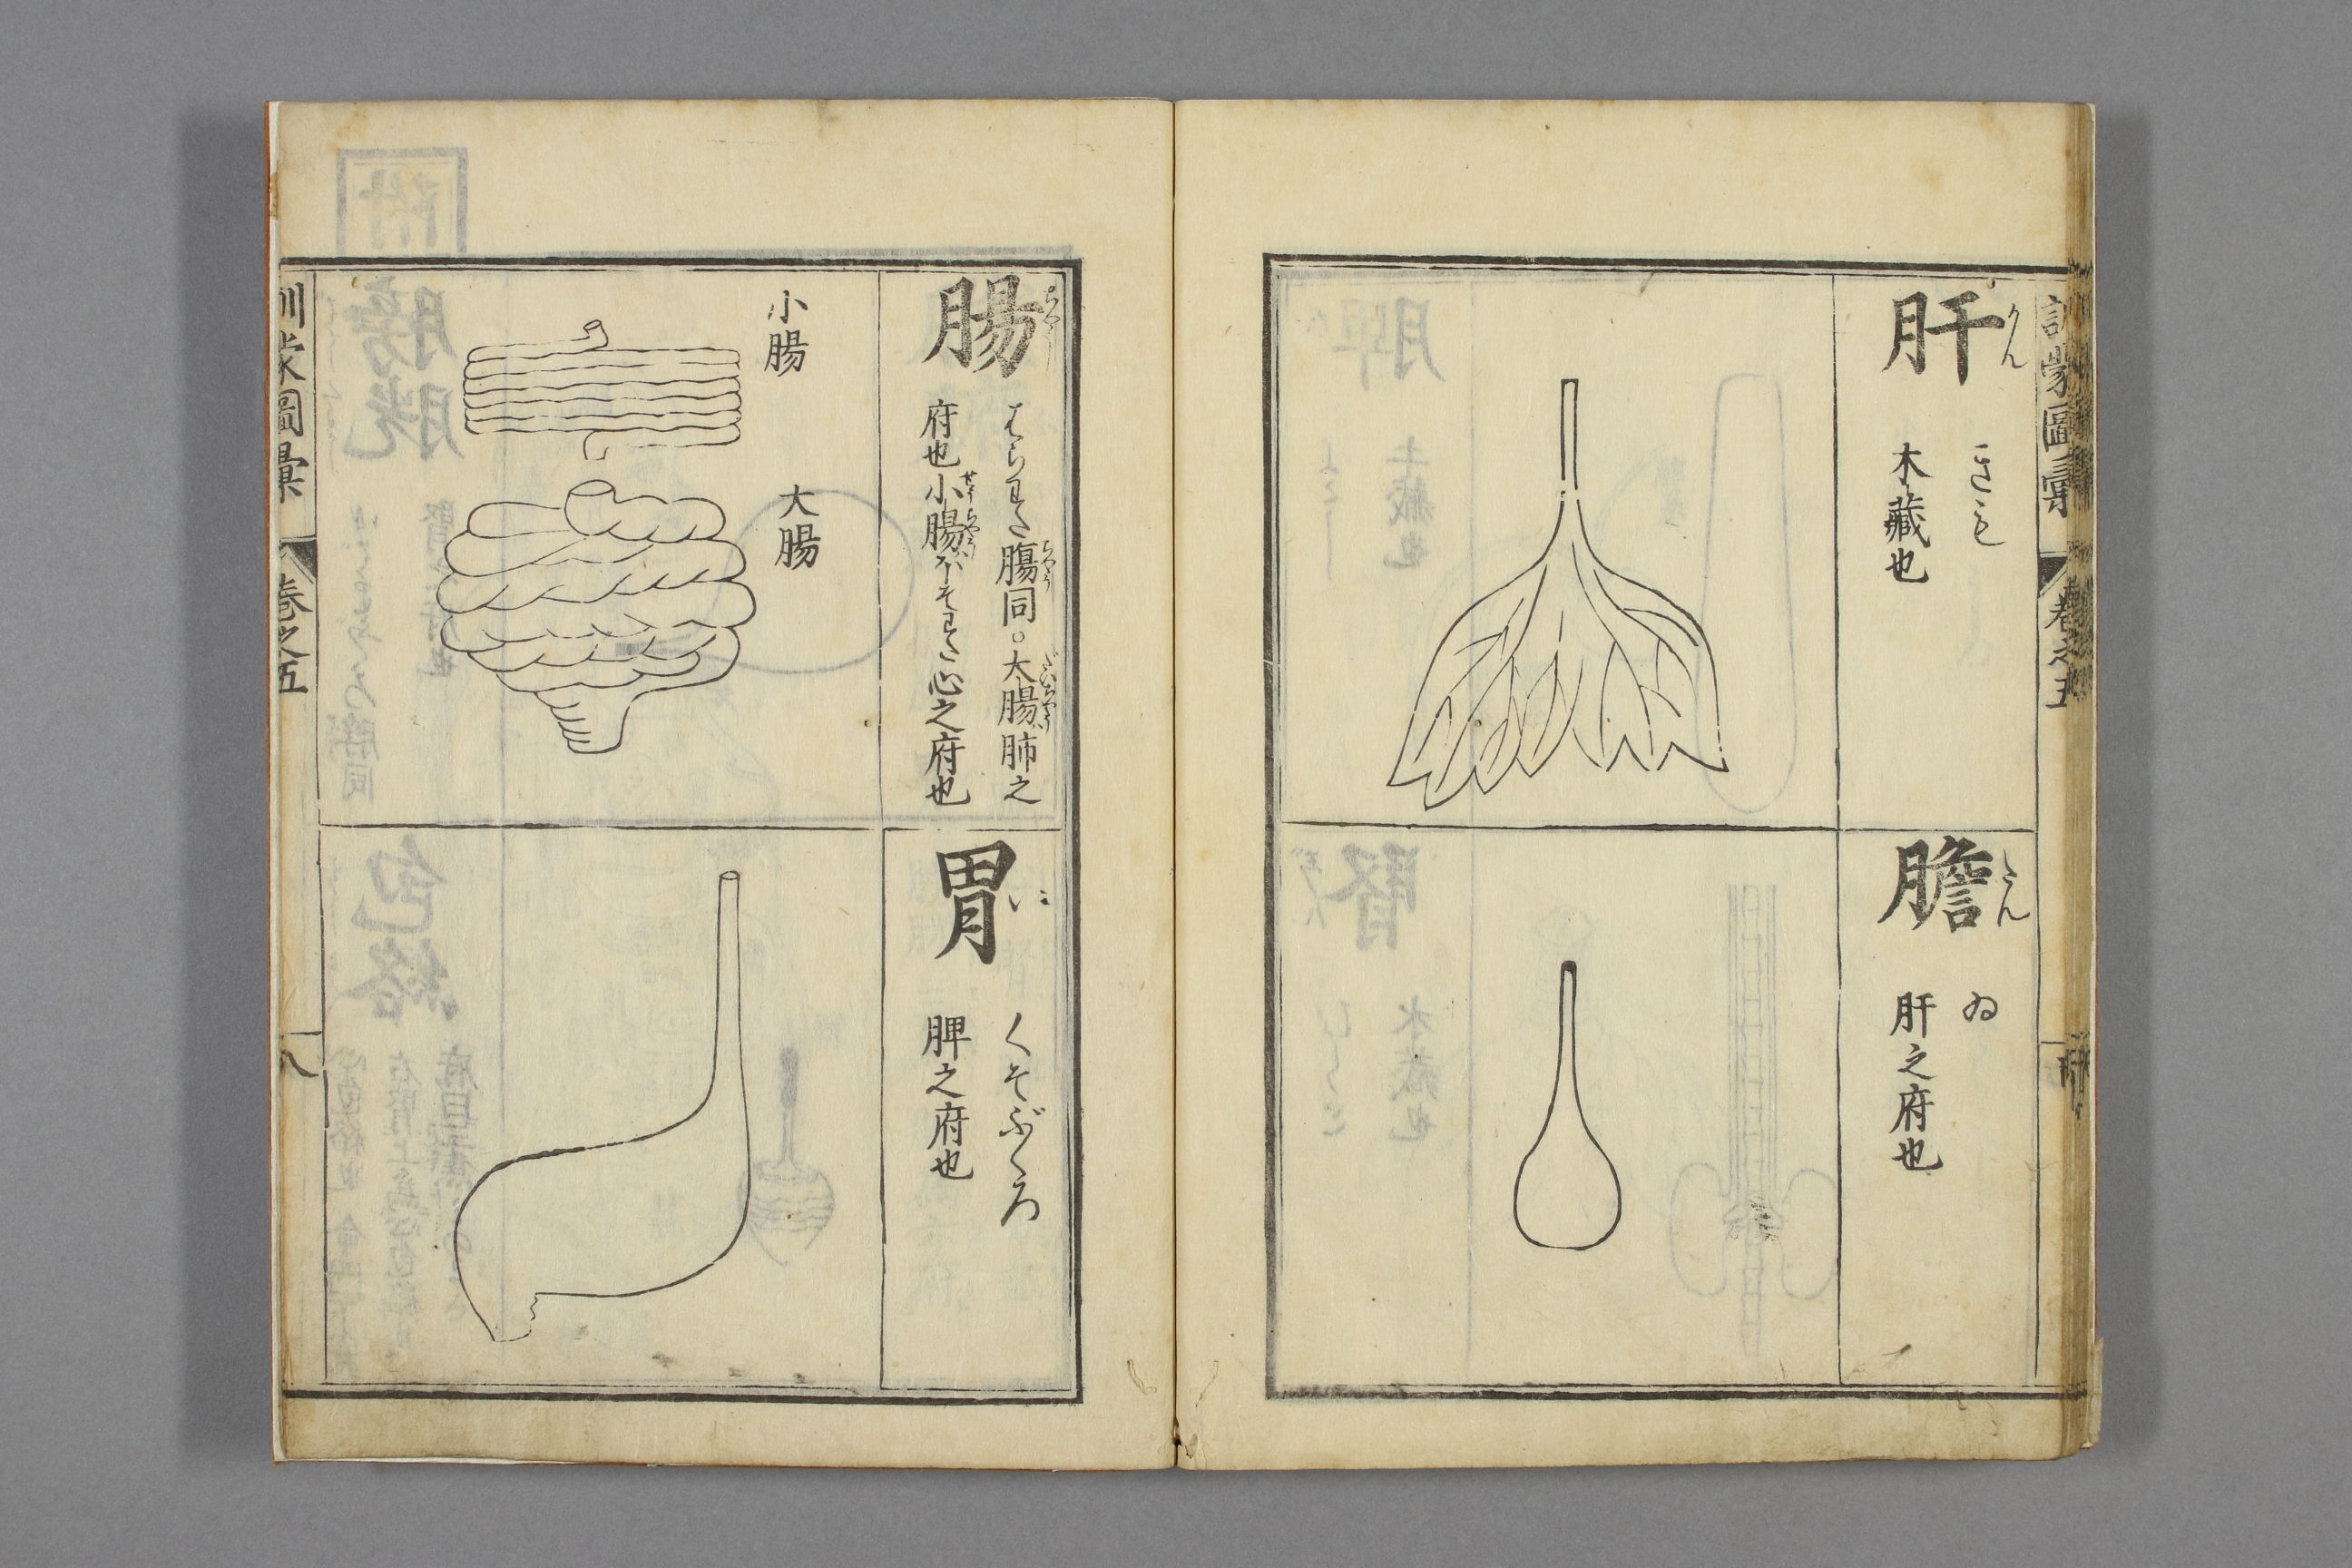 訓蒙圖彙
巻之五
肝
かん
きも
木藏也
膽
たん
ゐ
肝之府也
腸
ちやう
はらわた膓同。大腸肺之
ちやう
だいちやう
府也小腸ほそわた心之府也
せうちやう
小腸
大腸
胃
い
くそぶくろ
脾之府也
訓蒙圖彙
巻之五
八